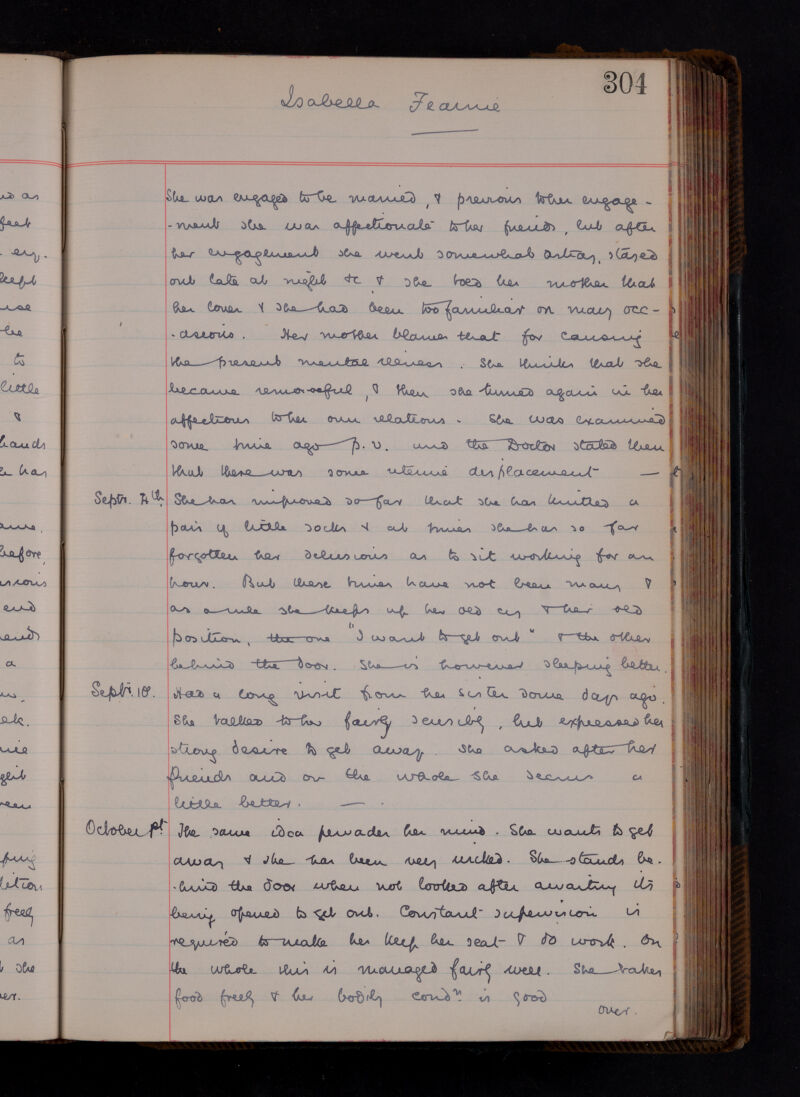 304
Isabella Fearnie
She was engaged to be married, & previous to her engage-
-ment she was affectionate to her friends, but after
her engagement she went somewhat astray, stayed
out late at night &c & she told her mother that
her lover & she had been too familiar on many occ-
-asions. Her mother blames that for causing
the present mental illness. She thinks that she
became remorseful, & then she turned again in her
affections to her own relations. She was examined
some time ago p.v. and the Doctor stated then
that there was some uterine displacement —
Septr. 4th. She has improved so far that she has knitted a
pair of little socks & at times she has so far
forgotten her delusions as to sit working for an
hour. But these times have not been many &
as a rule she keeps up her old cry & her old
position, the one "I want to get out" & the other
behind the door. She is however sleeping better.
Septr. 18. Had a long visit from her sister some days ago.
She talked to her fairly sensibly, but expressed her
strong desire to get away. She asked after her
friends and on the whole she seems a
little better. —.
October 1st. The same idea pervades her mind. She wants to get
away & she has been very wicked. She stands be-
-hind the door when not looked after awaiting its
being opened to get out. Constant supervision is
required to make her keep her seat & do work. On
the whole this is managed fairly well. She takes
food freely & her bodily condn. is good
over.